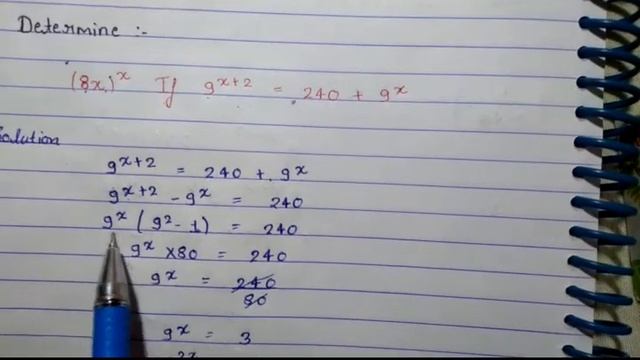 Determine :-
(8x)^x If 9^x+2 = 240 + 9^x
Solution
9^x+2 = 240 + 9^x
9^x+2 - 9^x = 240
9^x ( 9^2 - 1) = 240
9^x × 80 = 240
9^x = 240/80
9^x = 3